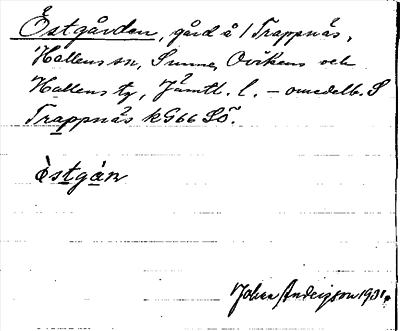 Estgården, gård å 1 Trappnäs,
Hallens sn, Sunne, Ovikens och
Hallens tg, Jämtl. l. – omedelb. S
Trappnäs kG66 Sö.
Èstgàn
Johan Anderson 1931.